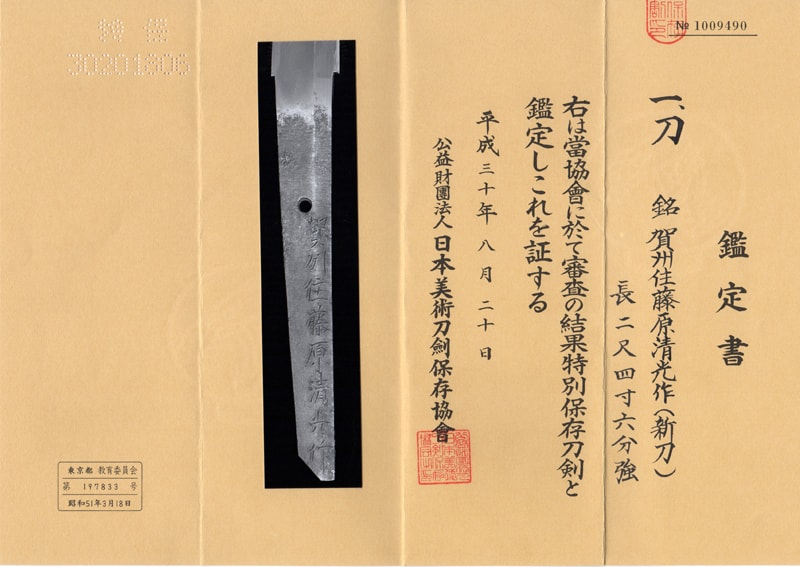 № 1009490
鑑定書
一、刀 銘 賀州住藤原清光作(新刀)
長二尺四寸六分強
右は當協會に於て審査の結果特別保存刀剣と
鑑定しこれを証する
平成三十年八月二十日
公益財團法人日本美術刀劍保存協會
賀州住藤原清光作
30201806
東京都 教育委員会
第 197833 号
昭和51年3月18日